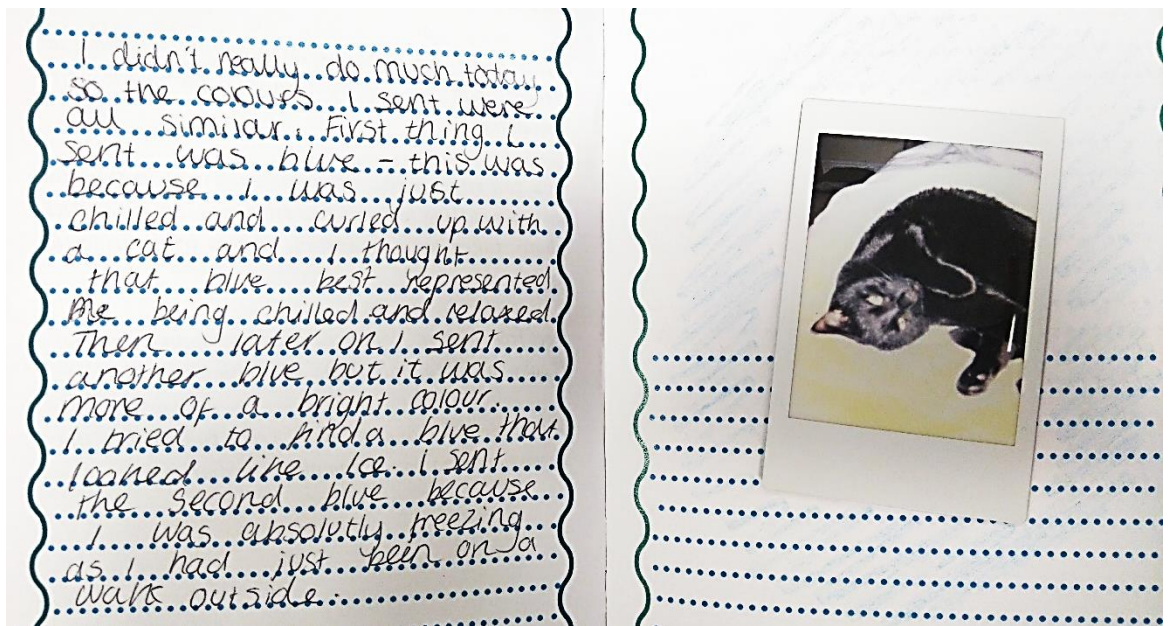 I didn't really do much today
so the colours I sent were
all similar. First thing I
sent was blue – this was
because I was just
chilled and curled up with
a cat and I thought
that blue best represented
me being chilled and relaxed.
Then later on I sent
another blue but it was
more of a bright colour.
I tried to find a blue that
looked like Ice. I sent
the second blue because
I was absolutly freezing
as I had just been on a
walk outside.